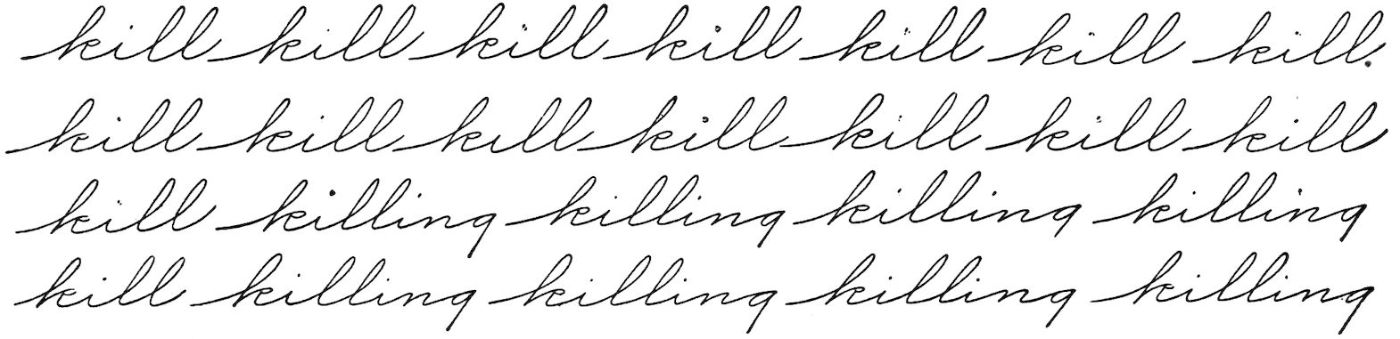 kill kill kill kill kill kill kill.
kill kill kill kill kill kill kill
kill killing killing killing killing
kill killing killing killing killing